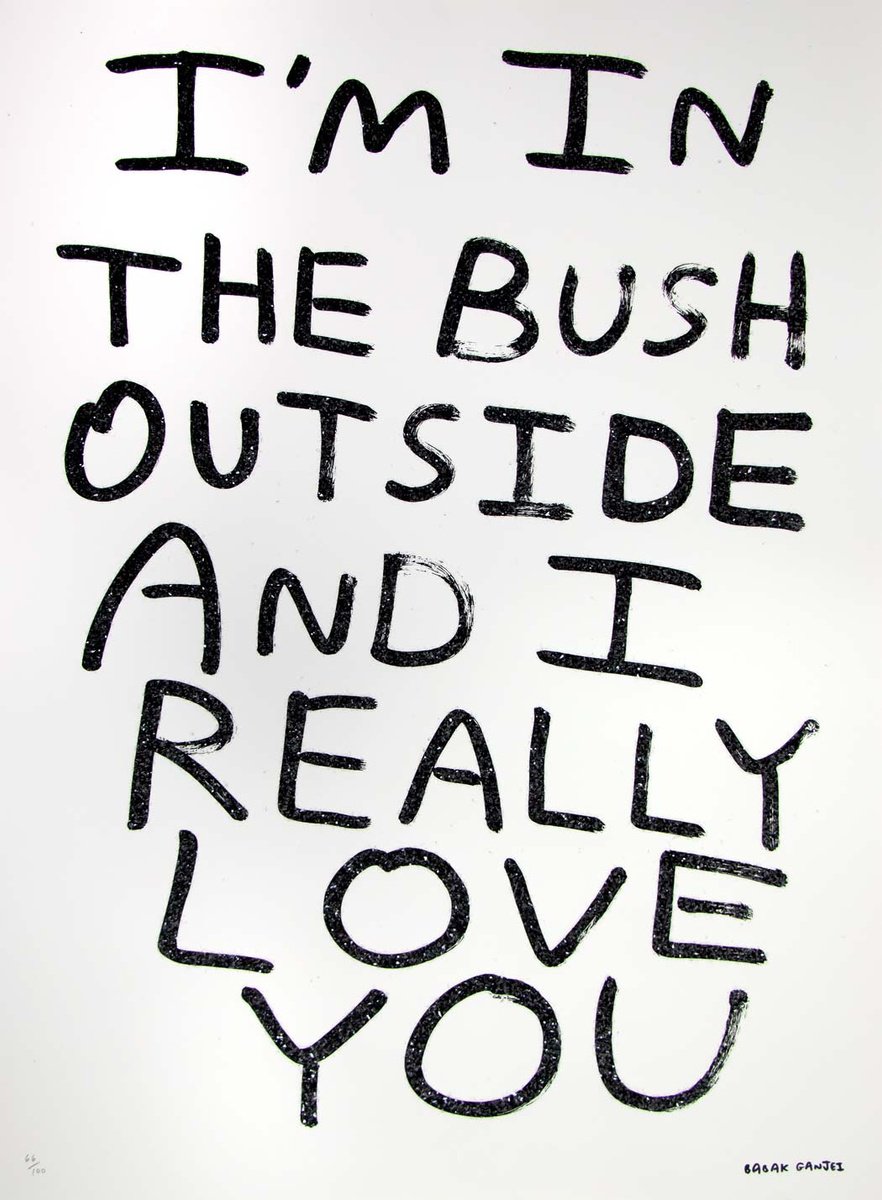 I'M IN
THE BUSH
OUTSIDE
AND I
REALLY
LOVE
YOU
66/100
BABAK GANJEI